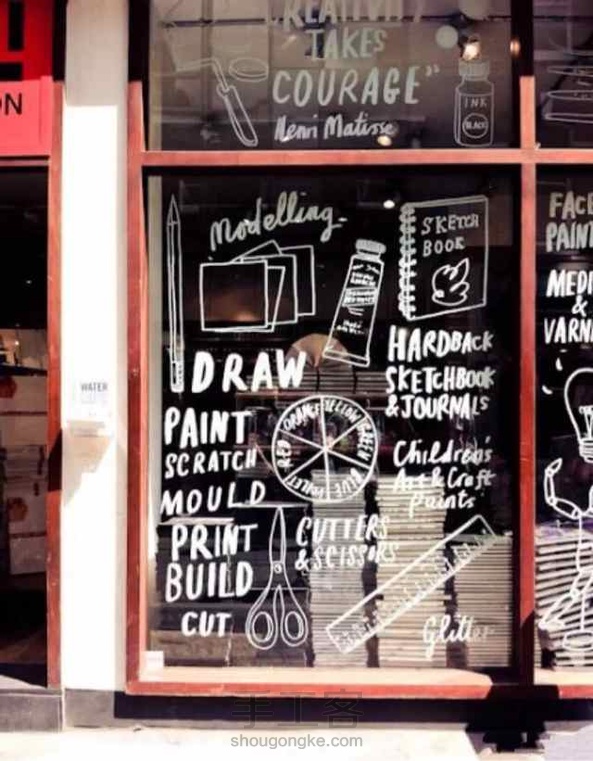 CREATIVITY
TAKES
COURAGE"
Henri Matisse
INK
BLACK
ON
Modelling
SKETCH
BOOK
HARDBACK
SKETCHBOOK
& JOURNALS
DRAW
PAINT
SCRATCH
MOULD
PRINT
BUILD
CUT
RED
ORANGE
YELLOW
GREEN
BLUE
VIOLET
Children's
Art & Craft
paints
CUTTERS
& SCISSORS
Glitter
WATER
FACE
PAINT
MEDI
&
VARN
手工客
shougongke.com